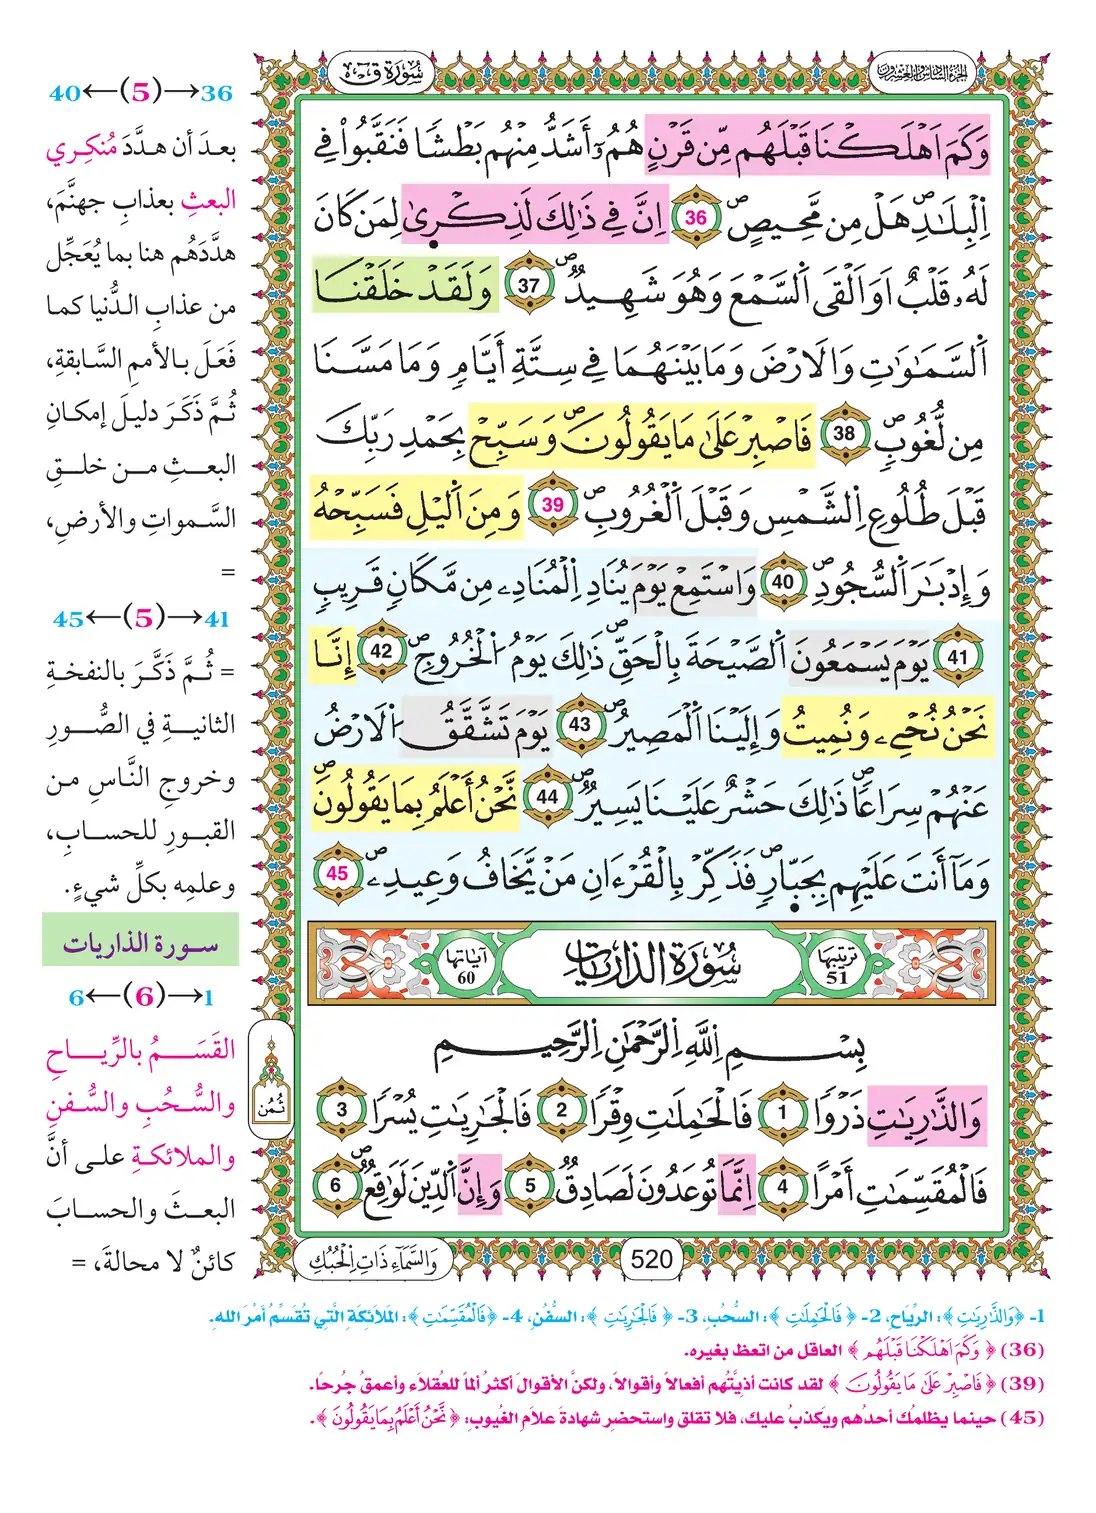 سُورَةُ قٓ
الجزء السادس والعشرون
وَكَمَ اَهْلَكْنَا قَبْلَهُم مِّن قَرْنٍ هُمُۥٓ أَشَدُّ مِنْهُم بَطْشًا فَنَقَّبُواْ فِے
اِ۬لْبِلَٰدِۖ هَلْ مِن مَّحِيصٍۖ 36 اِنَّ فِے ذَٰلِكَ لَذِكْر۪ىٰ لِمَن كَانَ
لَهُۥ قَلْبٌ اَوَ اَلْقَى اَ۬لسَّمْعَ وَهُوَ شَهِيدٌۖ 37 وَلَقَدْ خَلَقْنَا
اَ۬لسَّمَٰوَٰتِ وَالَارْضَ وَمَا بَيْنَهُمَا فِے سِتَّةِ أَيَّامٖ وَمَا مَسَّنَا
مِن لُّغُوبٖۖ 38 فَاصْبِرْ عَلَىٰ مَا يَقُولُونَۖ وَسَبِّحْ بِحَمْدِ رَبِّكَ
قَبْلَ طُلُوعِ اِ۬لشَّمْسِ وَقَبْلَ اَ۬لْغُرُوبِۖ 39 وَمِنَ اَ۬ليْلِ فَسَبِّحْهُ
وَإِدْبَٰرَ اَ۬لسُّجُودِۖ 40 وَاسْتَمِعْ يَوْمَ يُنَادِ اِ۬لْمُنَادِۦ مِن مَّكَانٖ قَرِيبٖ
41 يَوْمَ يَسْمَعُونَ اَ۬لصَّيْحَةَ بِالْحَقِّۖ ذَٰلِكَ يَوْمُ اُ۬لْخُرُوجِۖ 42 إِنَّا
نَحْنُ نُحْيِۦ وَنُمِيتُ وَإِلَيْنَا اَ۬لْمَصِيرُۖ 43 يَوْمَ تَشَّقَّقُ اُ۬لَارْضُ
عَنْهُمْ سِرَاعاٗۖ ذَٰلِكَ حَشْرٌ عَلَيْنَا يَسِيرٌۖ 44 نَّحْنُ أَعْلَمُ بِمَا يَقُولُونَۖ
وَمَآ أَنتَ عَلَيْهِم بِجَبّ۪ارٖۖ فَذَكِّرْ بِالْقُرْءَانِ مَنْ يَّخَافُ وَعِيدِۦۖ 45
ترتيبها 51
سُورَةُ الذاريات
آياتها 60
بِسْمِ اِ۬للَّهِ اِ۬لرَّحْمَٰنِ اِ۬لرَّحِيمِ
وَالذَّٰرِيَٰتِ ذَرْواٗ 1 فَالْحَٰمِلَٰتِ وِقْراٗ 2 فَالْجَٰرِيَٰتِ يُسْراٗ 3
فَالْمُقَسِّمَٰتِ أَمْراً 4 اِنَّمَا تُوعَدُونَ لَصَادِقٌ 5 وَإِنَّ اَ۬لدِّينَ لَوَٰقِعٌۖ 6
ثمن
520
وَالسَّمَآءِ ذَاتِ اِ۬لْحُبُكِ
36→(5)←40
بعدَ أن هدَّدَ مُنكِري
البعثِ بعذابِ جهنَّمَ،
هدَّدَهُم هنا بما يُعَجِّل
من عذابِ الدُّنيا كما
فَعَلَ بالأممِ السَّابقةِ،
ثُمَّ ذَكَرَ دليلَ إمكانِ
البعثِ من خلقِ
السَّمواتِ والأرضِ،
=
41→(5)←45
= ثُمَّ ذَكَّرَ بالنفخةِ
الثانيةِ في الصُّورِ
وخروجِ النَّاسِ من
القبورِ للحسابِ،
وعلمِه بكلِّ شيءٍ.
سورة الذاريات
1→(6)←6
القَسَمُ بالرِّياحِ
والسُّحُبِ والسُّفنِ
والملائكةِ على أنَّ
البعثَ والحسابَ
كائنٌ لا محالةَ، =
1- ﴿وَالذَّٰرِيَٰتِ﴾: الرِّيَاحِ، 2- ﴿فَالْحَٰمِلَٰتِ﴾: السُّحُبِ، 3- ﴿فَالْجَٰرِيَٰتِ﴾: السُّفُنِ، 4- ﴿فَالْمُقَسِّمَٰتِ﴾: المَلَائِكَةِ الَّتِي تُقَسِّمُ أَمْرَ اللهِ.
(36) ﴿وَكَمَ اَهْلَكْنَا قَبْلَهُم﴾ العاقل من اتعظ بغيره.
(39) ﴿فَاصْبِرْ عَلَىٰ مَا يَقُولُونَ﴾ لقد كانت أذيَّتُهم أفعالاً وأقوالاً، ولكنَّ الأقوالَ أكثرُ ألماً للعقلاء وأعمقُ جُرحاً.
(45) حينما يظلمُك أحدُهم ويَكذبُ عليك، فلا تقلق واستحضِر شهادةَ علاَّم الغُيوبِ: ﴿نَّحْنُ أَعْلَمُ بِمَا يَقُولُونَ﴾.